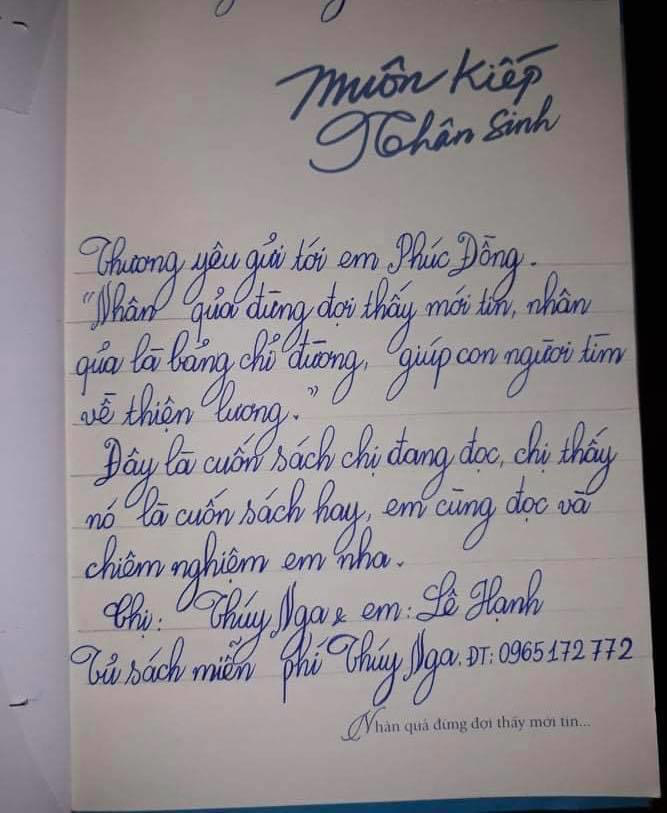 Muôn Kiếp
Nhân Sinh
Thương yêu gửi tới em Phúc Đồng.
"Nhân quả đừng đợi thấy mới tin, nhân
quả là bảng chỉ đường, giúp con người tìm
về thiện lương."
Đây là cuốn sách chị đang đọc, chị thấy
nó là cuốn sách hay, em cũng đọc và
chiêm nghiệm em nha.
Chị: Thúy Nga & em: Lê Hạnh
Tủ sách miễn phí Thúy Nga. ĐT: 0965172772
Nhân quả đừng đợi thấy mới tin...